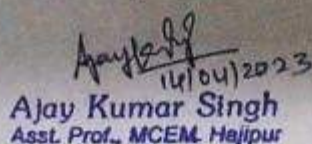 14/04/2023
Ajay Kumar Singh
Asst. Prof., MCEM, Hajipur